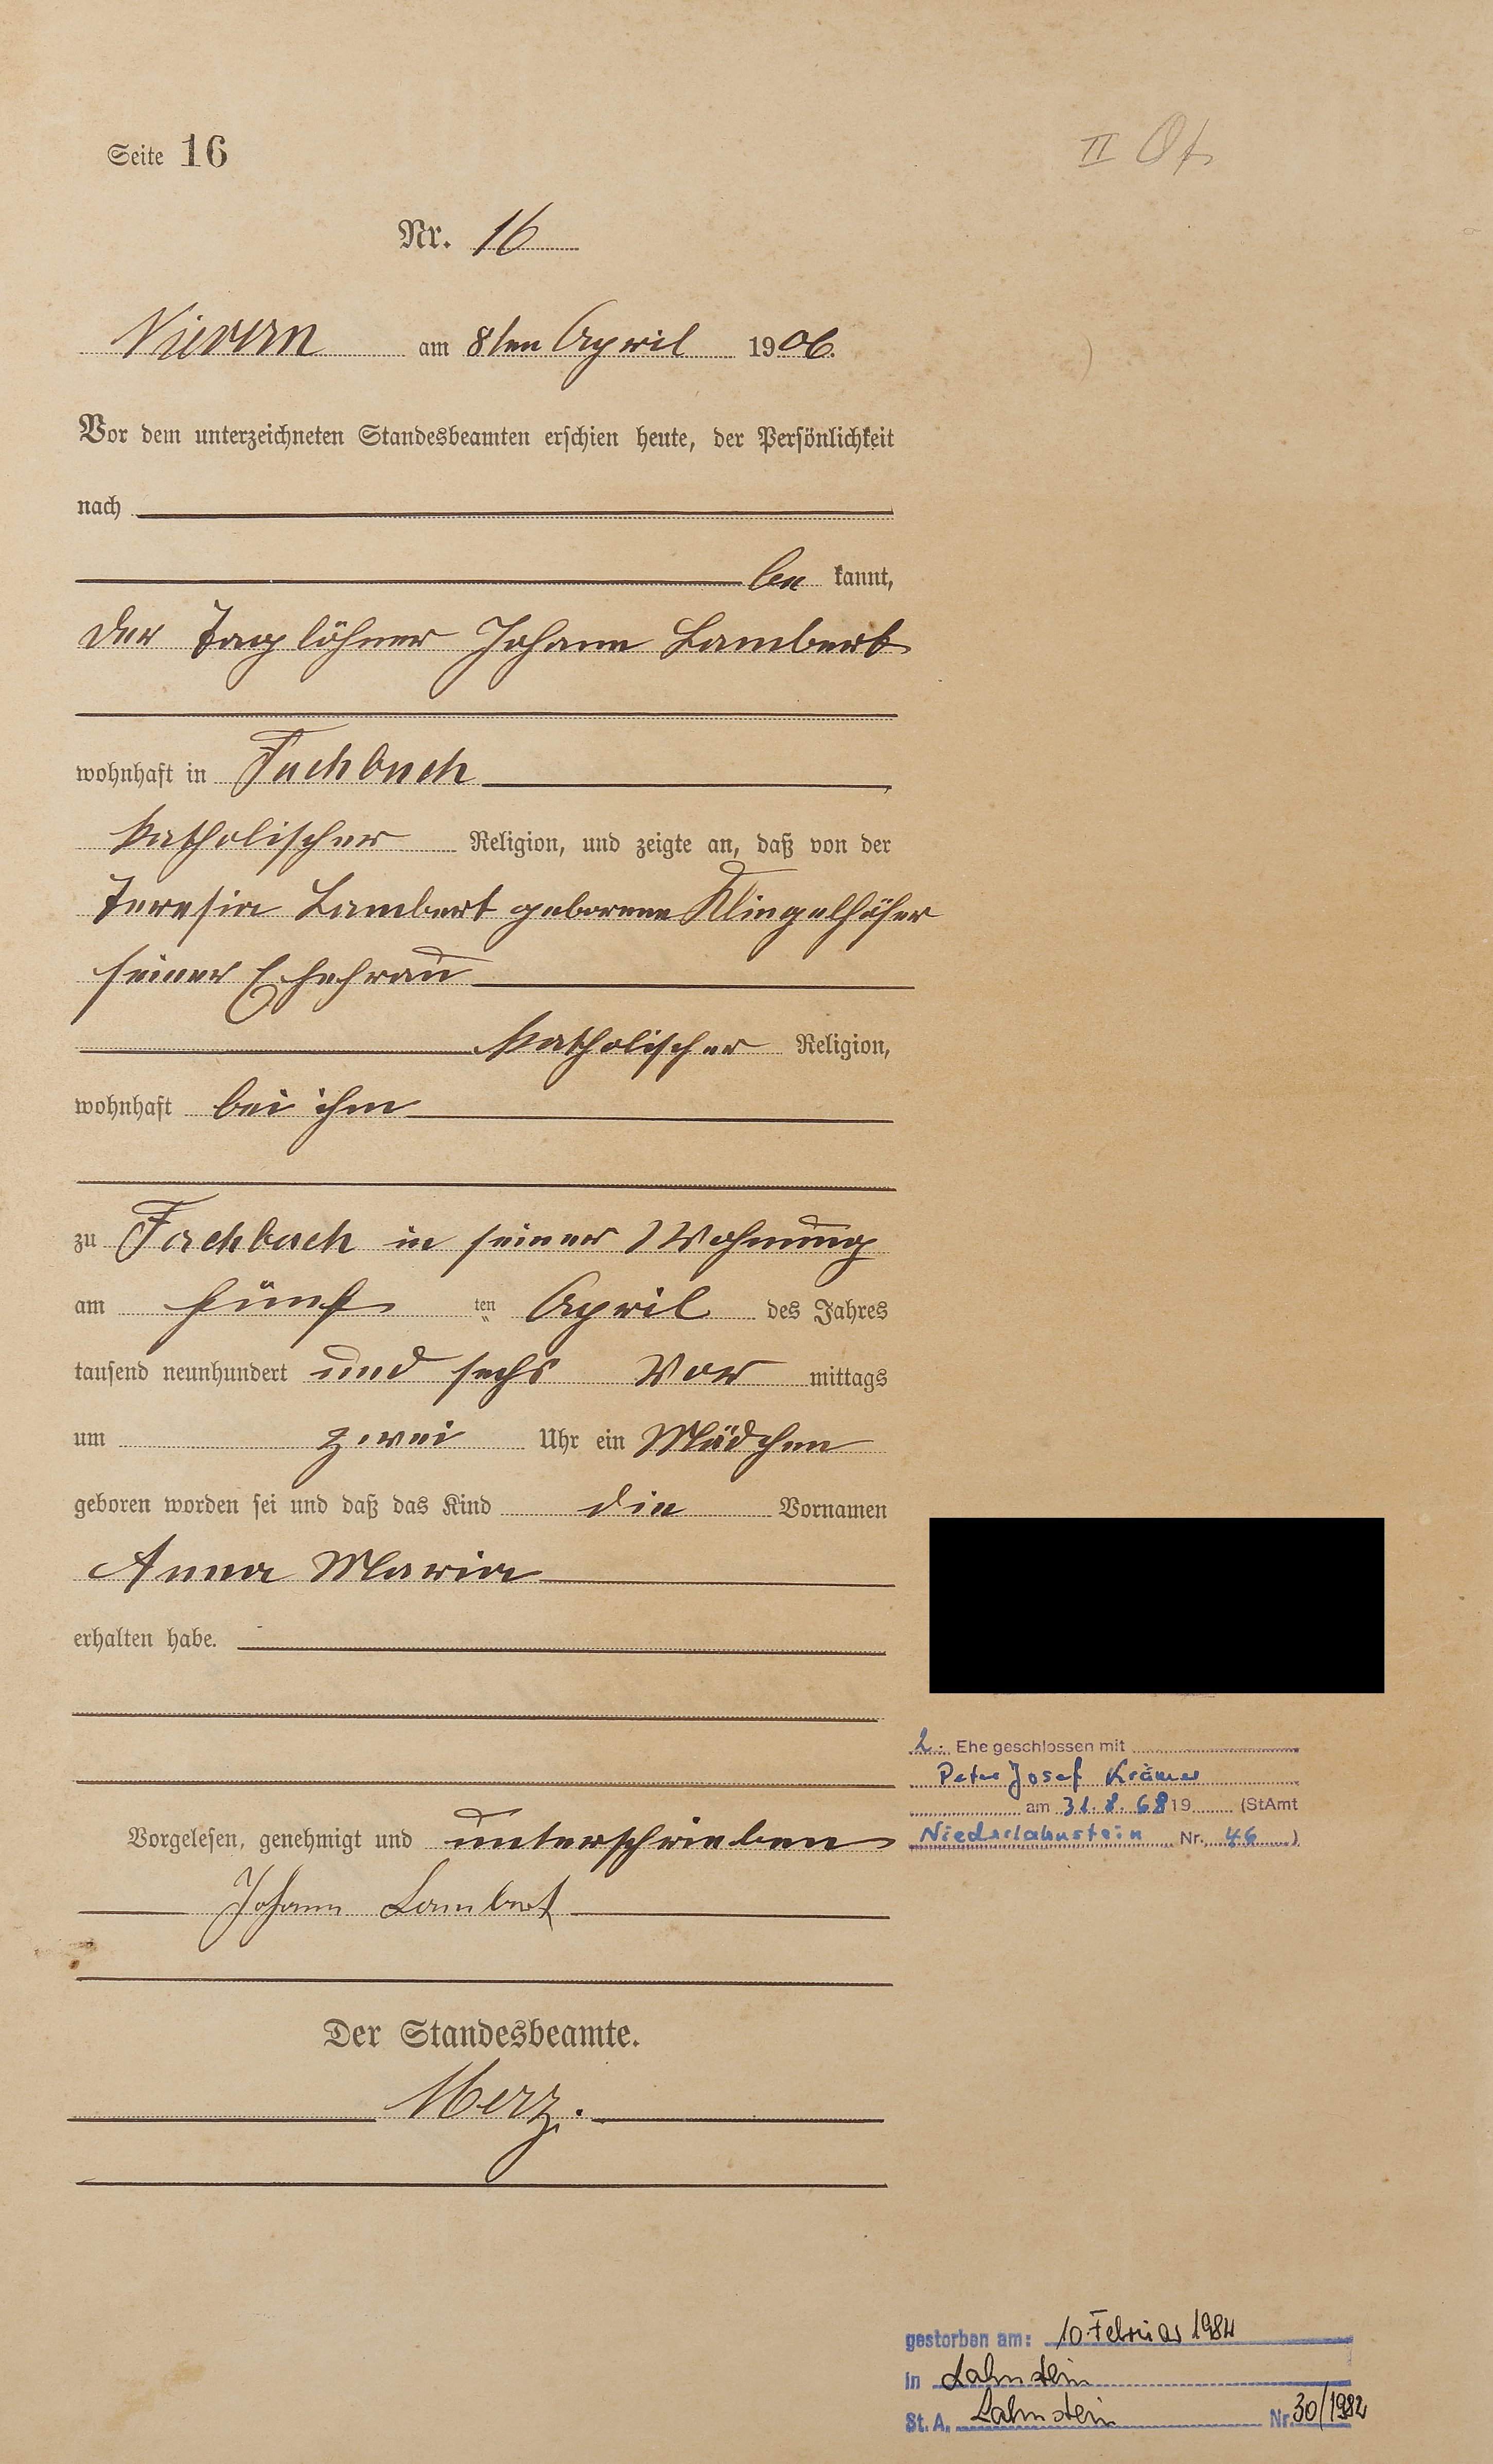 Seite 16
II Qt.
Nr. 16
Nievern am 8ten April 1906.
Vor dem unterzeichneten Standesbeamten erschien heute, der Persönlichkeit
nach
be kannt,
der Taglöhner Johann Lambert
wohnhaft in Fachbach
katholischer Religion, und zeigte an, daß von der
Teresia Lambert geborene Klingelhöfer
seiner Ehefrau
katholischer Religion,
wohnhaft bei ihm
zu Fachbach in seiner Wohnung
am fünf ten April des Jahres
tausend neunhundert und sechs Vor mittags
um zwei Uhr ein Mädchen
geboren worden sei und daß das Kind die Vornamen
Anna Maria
erhalten habe.
2. Ehe geschlossen mit
Peter Josef Krämer
am 31. 8. 68 19 (StAmt
Niederlahnstein Nr. 46 )
Vorgelesen, genehmigt und unterschrieben
Johann Lambert
Der Standesbeamte.
Merz.
gestorben am: 10. Februar 1982
in Lahnstein
St. A. Lahnstein Nr. 30/1982